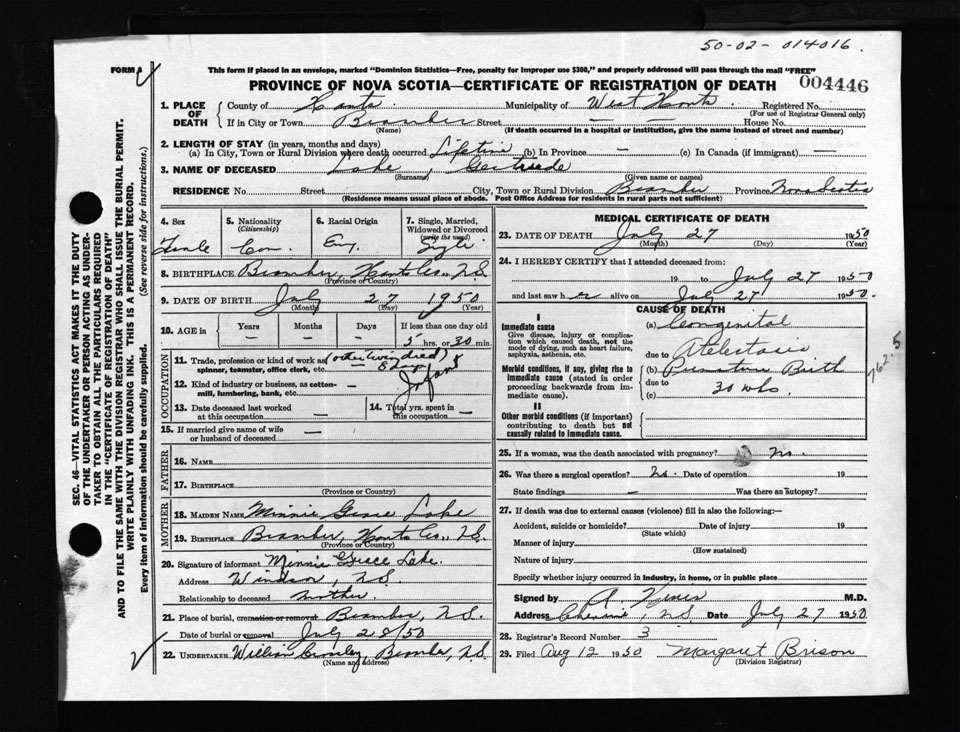 50-02-014016
FORM
This form if placed in an envelope, marked "Dominion Statistics—Free, penalty for improper use $300," and properly addressed will pass through the mail "FREE"
PROVINCE OF NOVA SCOTIA—CERTIFICATE OF REGISTRATION OF DEATH
004446
SEC. 46—VITAL STATISTICS ACT MAKES IT THE DUTY
OF THE UNDERTAKER OR PERSON ACTING AS UNDER-
TAKER TO OBTAIN ALL THE PARTICULARS REQUIRED
IN THE "CERTIFICATE OF REGISTRATION OF DEATH"
AND TO FILE THE SAME WITH THE DIVISION REGISTRAR WHO SHALL ISSUE THE BURIAL PERMIT.
WRITE PLAINLY WITH UNFADING INK. THIS IS A PERMANENT RECORD.
Every item of information should be carefully supplied. (See reverse side for instructions.)
1. PLACE OF DEATH
County of Hants Municipality of West Hants Registered No.
(For use of Registrar General only)
If in City or Town Bramber Street — — House No.
(Name) (If death occurred in a hospital or institution, give the name instead of street and number)
2. LENGTH OF STAY (in years, months and days)
(a) In City, Town or Rural Division where death occurred Lifetime (b) In Province — (c) In Canada (if immigrant) —
3. NAME OF DECEASED Lake, Gertrude
(Surname) (Given name or names)
RESIDENCE No. Street City, Town or Rural Division Bramber Province Nova Scotia
(Residence means usual place of abode. Post Office Address for residents in rural parts not sufficient)
4. Sex
Female
5. Nationality
(Citizenship)
Can.
6. Racial Origin
Eng.
7. Single, Married, Widowed or Divorced
(write the word)
Single
8. BIRTHPLACE Bramber, Hants Co., N.S.
(Province or Country)
9. DATE OF BIRTH July 27 1950
(Month) (Day) (Year)
10. AGE in Years Months Days If less than one day old
— — — 5 hrs. or 30 min.
OCCUPATION
11. Trade, profession or kind of work as spinner, teamster, office clerk, etc.
(other twin died)
Infant
12. Kind of industry or business, as cotton-mill, lumbering, bank, etc.
13. Date deceased last worked at this occupation —
14. Total yrs. spent in this occupation —
15. If married give name of wife or husband of deceased —
FATHER
16. NAME
17. BIRTHPLACE
(Province or Country)
MOTHER
18. MAIDEN NAME Minnie Grace Lake
19. BIRTHPLACE Bramber, Hants Co., N.S.
(Province or Country)
20. Signature of informant Minnie Grace Lake.
Address Windsor, N.S.
Relationship to deceased mother.
21. Place of burial, cremation or removal Bramber, N.S.
Date of burial or removal July 28/50
22. UNDERTAKER William Crossley, Bramber, N.S.
(Name and address)
MEDICAL CERTIFICATE OF DEATH
23. DATE OF DEATH July 27 1950
(Month) (Day) (Year)
24. I HEREBY CERTIFY that I attended deceased from:
19 to July 27 1950
and last saw her alive on July 27 1950.
CAUSE OF DEATH
I
Immediate cause
Give disease, injury or complication which caused death, not the mode of dying, such as heart failure, asphyxia, asthenia, etc.
(a) Congenital
due to Atelectasis
Morbid conditions, if any, giving rise to immediate cause (stated in order proceeding backwards from immediate cause).
(b) Premature Birth
due to 30 wks.
(c)
762.5
II
Other morbid conditions (if important) contributing to death but not causally related to immediate cause.
25. If a woman, was the death associated with pregnancy? no.
26. Was there a surgical operation? no. Date of operation 19
State findings — Was there an autopsy?
27. If death was due to external causes (violence) fill in also the following:—
Accident, suicide or homicide? Date of injury 19
(State which)
Manner of injury
(How sustained)
Nature of injury
Specify whether injury occurred in industry, in home, or in public place
Signed by M.D.
Address Cheverie, N.S. Date July 27 1950
28. Registrar's Record Number 3
29. Filed Aug 12 1950 Margaret Brison
(Division Registrar)